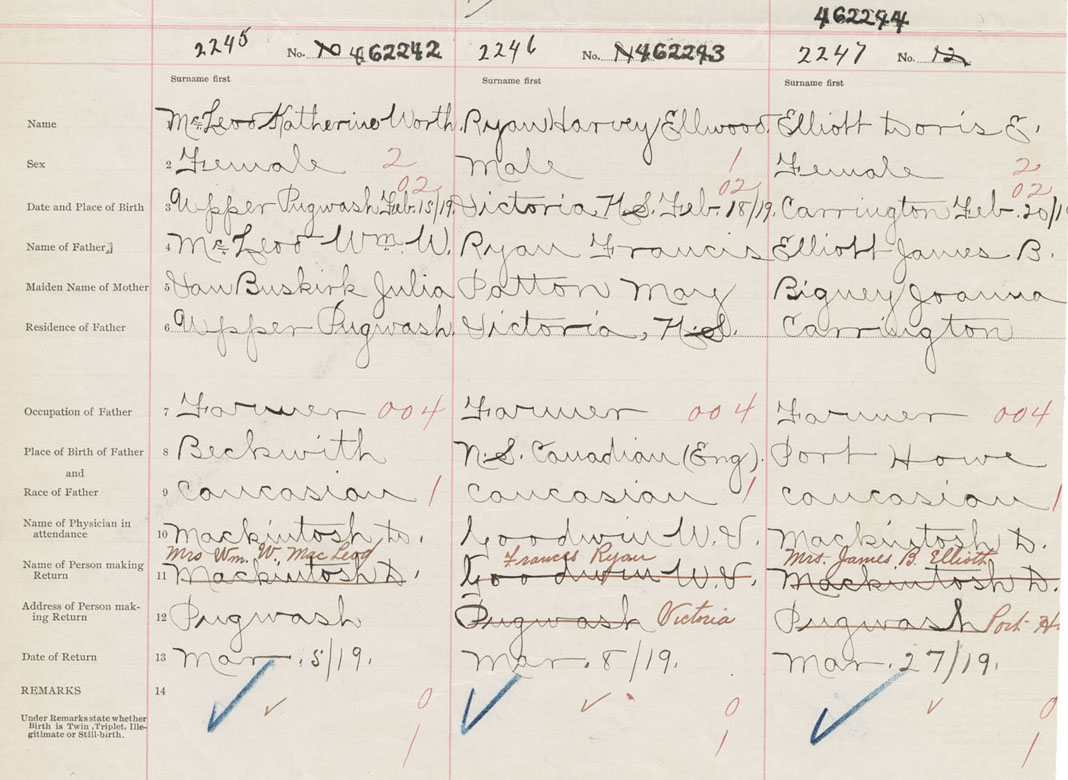 462244
2245 No. 462242 2246 No. 462243 2247 No. 12
Surname first Surname first Surname first
Name McLeod Katherine Worth. Ryan Harvey Ellwood. Elliott Doris E.
Sex 2 Female 2 Male 1 Female 2
02 02 02
Date and Place of Birth 3 Upper Pugwash Feb. 15/19. Victoria, N.S. Feb. 18/19. Carrington Feb. 20/1
Name of Father 4 McLeod Wm. W. Ryan Francis Elliott James B.
Maiden Name of Mother 5 Van Buskirk Julia Patton May Bigney Joanna
Residence of Father 6 Upper Pugwash. Victoria, N.S. Carrington
Occupation of Father 7 Farmer 004 Farmer 004 Farmer 004
Place of Birth of Father 8 Beckwith N.S. Canadian (Eng). Port Howe
and
Race of Father 9 Caucasian 1 Caucasian 1 Caucasian 1
Name of Physician in
attendance 10 Mackintosh D. Goodwin W.V. Mackintosh D
Mrs Wm. W. MacLeod Francis Ryan Mrs. James B. Elliott
Name of Person making
Return 11 Mackintosh D. Goodwin W.V. Mackintosh D.
Address of Person mak-
ing Return 12 Pugwash Pugwash Victoria Pugwash Port H.
Date of Return 13 Mar. 5/19. Mar. 8/19. Mar. 27/19.
REMARKS 14 0 0 0
Under Remarks state whether
Birth is Twin, Triplet, Ille-
gitimate or Still-birth.
1 1 1